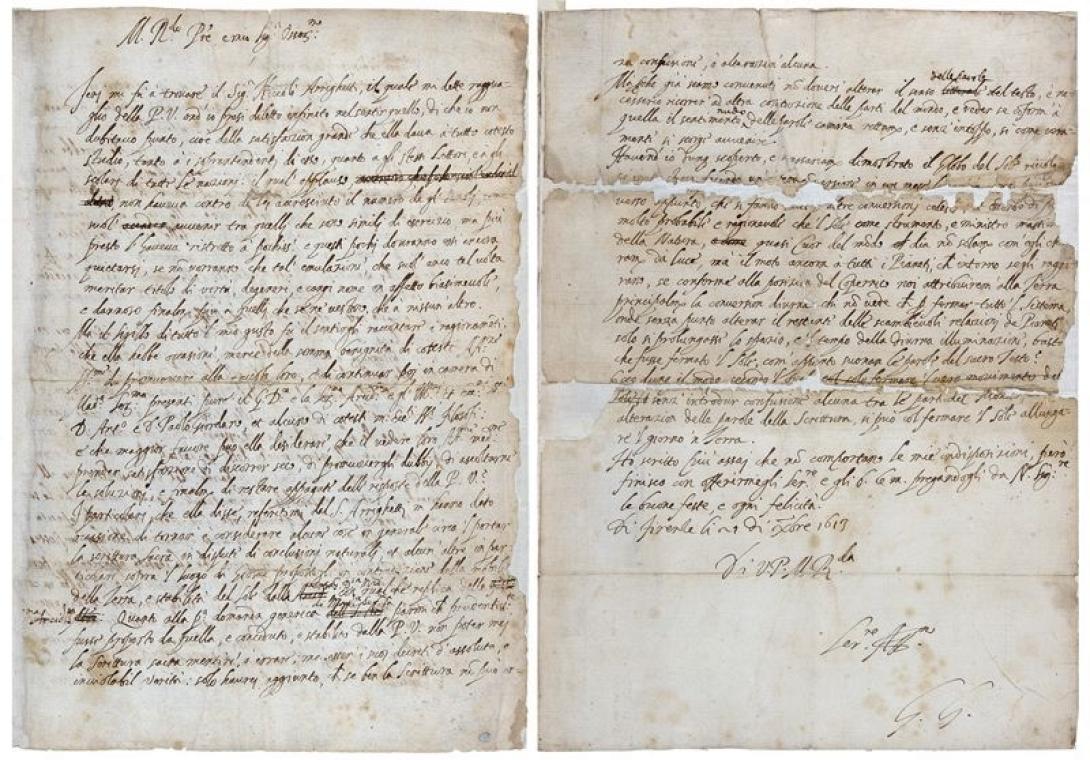 M. R.do P.re e mio Sig.r Oss.mo
Ieri mi fu à trovare il Sig.r Niccolò Arrighetti, il quale mi dette raggua-
glio della P. V. ond'io presi diletto infinito nel sentir quello, di che io non
dubitavo punto, cioè della satisfazion grande che ella dava à tutto cotesto
Studio, tanto à i sopraintendenti di esso, quanto à gli stessi Lettori, e à gli
scolari di tutte le nazioni: il qual applauso
non haveva contro di lei accresciuto il numero de gli emoli, come
suol avvenir tra quelli che sono simili di esercizio, ma più
presto l'haveva ristretto à pochissimi: e questi pochi dovranno essi ancora
quietarsi, se non vorranno che tal emulazione, che suol anco tal volta
meritar titolo di virtù, degeneri, e cangi nome in affetto biasimevole,
e dannoso finalmente più à quelli che se ne vestono, che à nissun altro.
Ma il sigillo di tutto il mio gusto fu il sentirgli raccontar i ragionamenti,
che ella hebbe occasione, mercè della somma benignità di coteste Al.ze
Ser.me di promuovere alla tavola loro, e di continuar poi in camera di
Mad.a Ser.ma presenti pure il G. D. e la Ser.ma Arcid.a e gl'Ill.mi et ecc.mi SS.
D. Ant.o e D. Paolo Giordano, et alcuni di cotesti m. ecc.ti filosofi.
E che maggior favore può ella desiderare che il vedere loro Al.ze med.me
prender satisfazione di discorrer seco, di promuovergli dubbii, di ascoltarne
le soluzioni, e finalm. di restare appagate delle risposte della P. V.?
I particolari, che ella disse, referitimi dal S. Arrighetti, mi hanno dato
occasione di tornar à considerare alcune cose in generale circa 'l portar
la scrittura sacra in dispute di conclusioni naturali, et alcun'altre in par-
ticolare sopra 'l luogo di Giosuè propostoli in contradizione della mobilità
della Terra, e stabilità del Sole dalla Gran Duch.a Madre con qualche replica della
Ser.ma Arcid.a Quanto alla p.a domanda generica di Mad.a Ser.ma parmi che prudentiss.te
fusse proposto da quella, e conceduto, e stabilito dalla P. V. non poter mai
la Scrittura sacra mentire, ò errare, ma essere i suoi decreti d'assoluta, e
inviolabil verità: solo haurei aggiunto, che se ben la Scrittura non può er-
na confusione, ò alterazion alcuna.
Ma se già siamo convenuti non doversi alterar il senso delle parole del testo, è ne-
cessario ricorrer ad altra costituzione delle parti del mondo, e veder se conforme à
quella il sentimento nudo delle parole camina rettam. e senza intoppo, sì come vera-
menti si scorge avvenire.
Havend'io dunque scoperto, e necessariam. dimostrato il Globo del Sole rivolge-
se in se stesso facendo un'intera conversione in un mese
verso appunto, che si fanno tutte l'altre conversioni celesti
molto probabile e ragionevole che 'l Sole come strumento, e ministro massimo
della Natura, quasi cuor del mondo dia non solam. com'egli chia-
ram. dà luce, mà il moto ancora à tutti i Pianeti, che intorno se gli raggi-
rano, se conforme alla posizion del Copernico noi attribuirem alla Terra
principalm. la conversion diurna chi non vede che per fermar tutto 'l Sistema
onde senza punto alterar il restante delle scambievoli relazioni de Pianeti
solo si prolungasse lo spazio, e 'l tempo della diurna illuminazione, bastò
che fusse fermato 'l Sole, com'appunto suonan le parole del sacro Testo?
Ecco dunque il modo secondo 'l quale
senza introdur confusione alcuna tra le parti del mondo
alterazion delle parole della Scrittura, si può col fermare 'l Sole allunga-
re 'l giorno in Terra.
Ho scritto più assai che non comportano le mie indisposizioni, però
finisco con offerirmegli ser.re e gli b. le m. pregandogli da N. Sig.re
le buone feste, e ogni felicità.
Di Firenze li 21 di Xbre 1613
Di V. P. M. R.da
Ser.re Aff.mo
G. G.